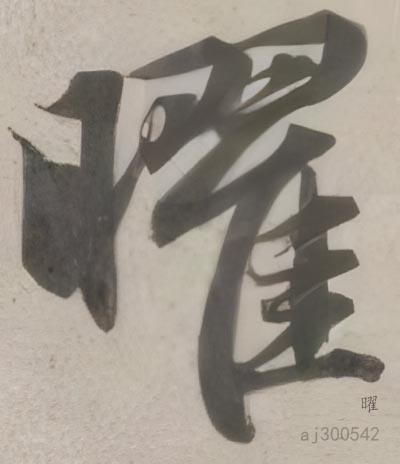 曜
曜
aj300542